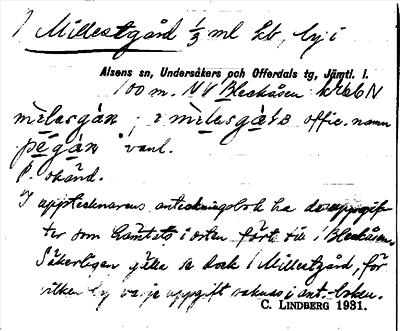 1 Millestgård 1/3 ml Lb, by i
Alsens sn, Undersåkers och Offerdals tg, Jämtl. l.
100 m. NV Bleckåsen k N
offic. namn
vanl.
P. okänd.
I upptecknarens anteckningsbok ha de uppgif-
ter som hämtats i orten förts till 1 Bleckåsen.
Säkerligen gälla de dock 1 Millestgård, för
vilken by varje uppgift saknas i ant.-boken.
C. LINDBERG 1931.